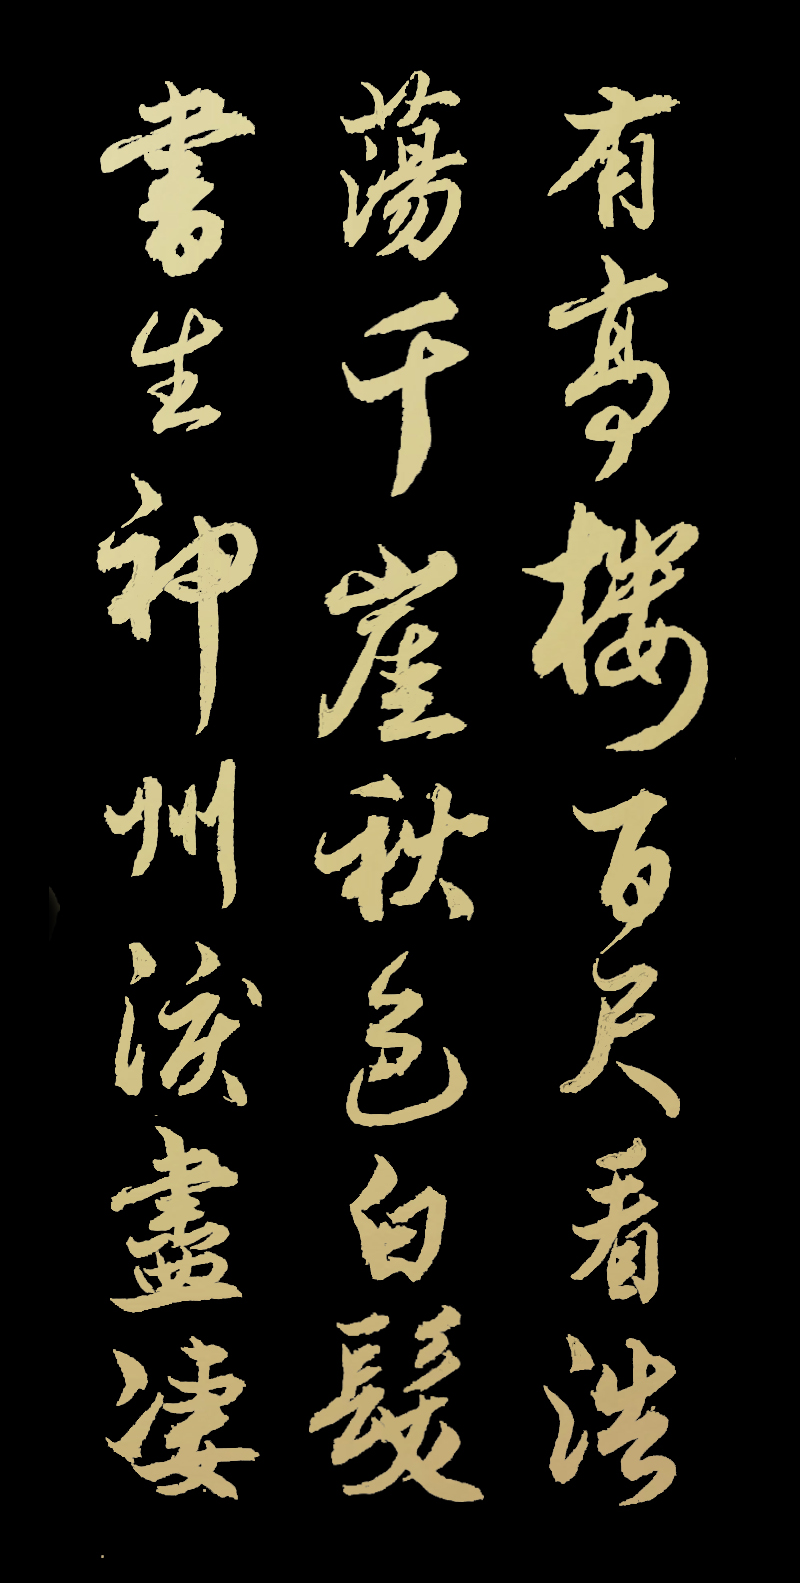 有高楼百尺看浩
蕩千崖秋色白髮
書生神州淚盡凄